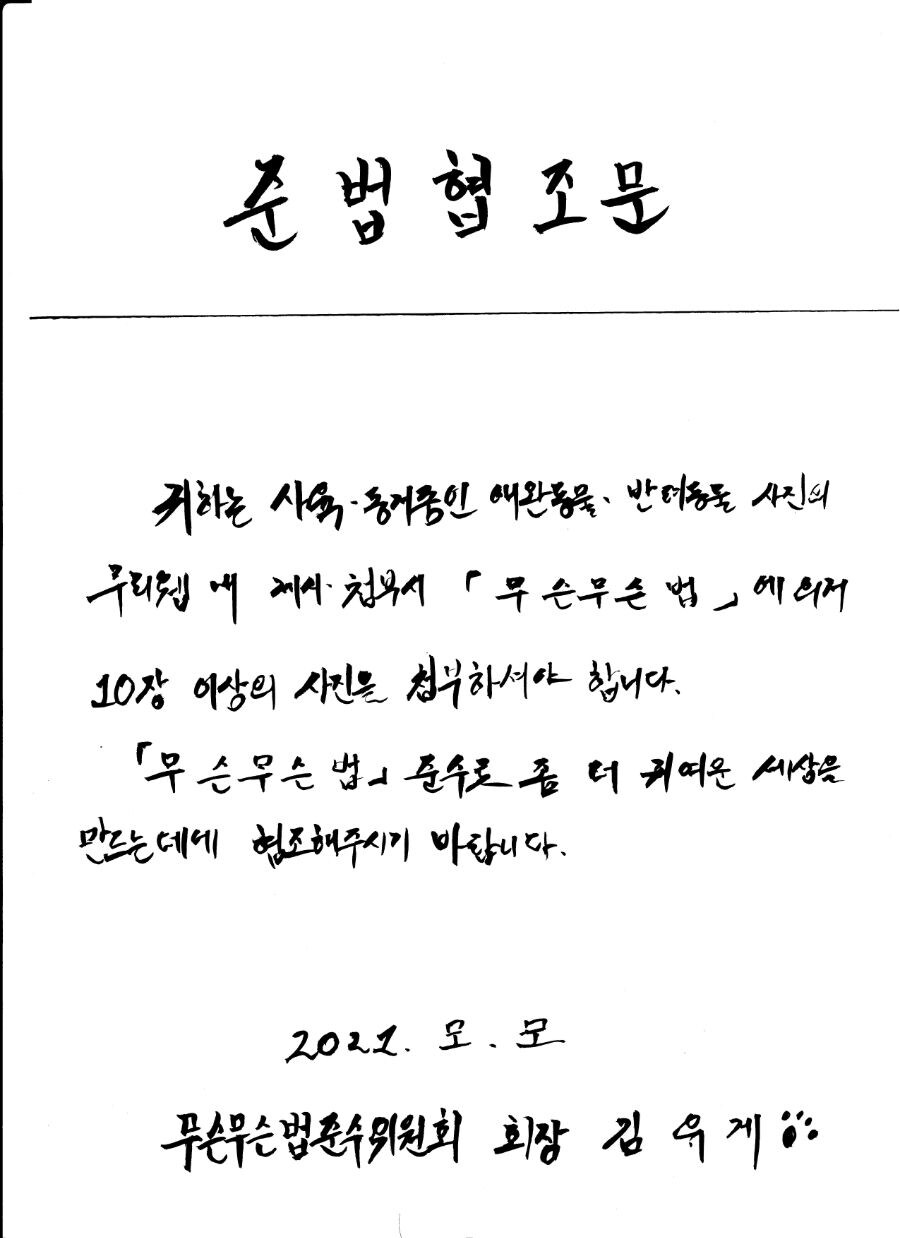 준법협조문
귀하는 사육·동거중인 애완동물, 반려동물 사진의
루리웹 내 게시·첨부시 「무슨무슨법」에 의거
10장 이상의 사진을 첨부하셔야 합니다.
「무슨무슨법」 준수로 좀 더 귀여운 세상을
만드는데에 협조해주시기 바랍니다.
2021. 모. 모
무슨무슨법준수위원회 회장 김유게